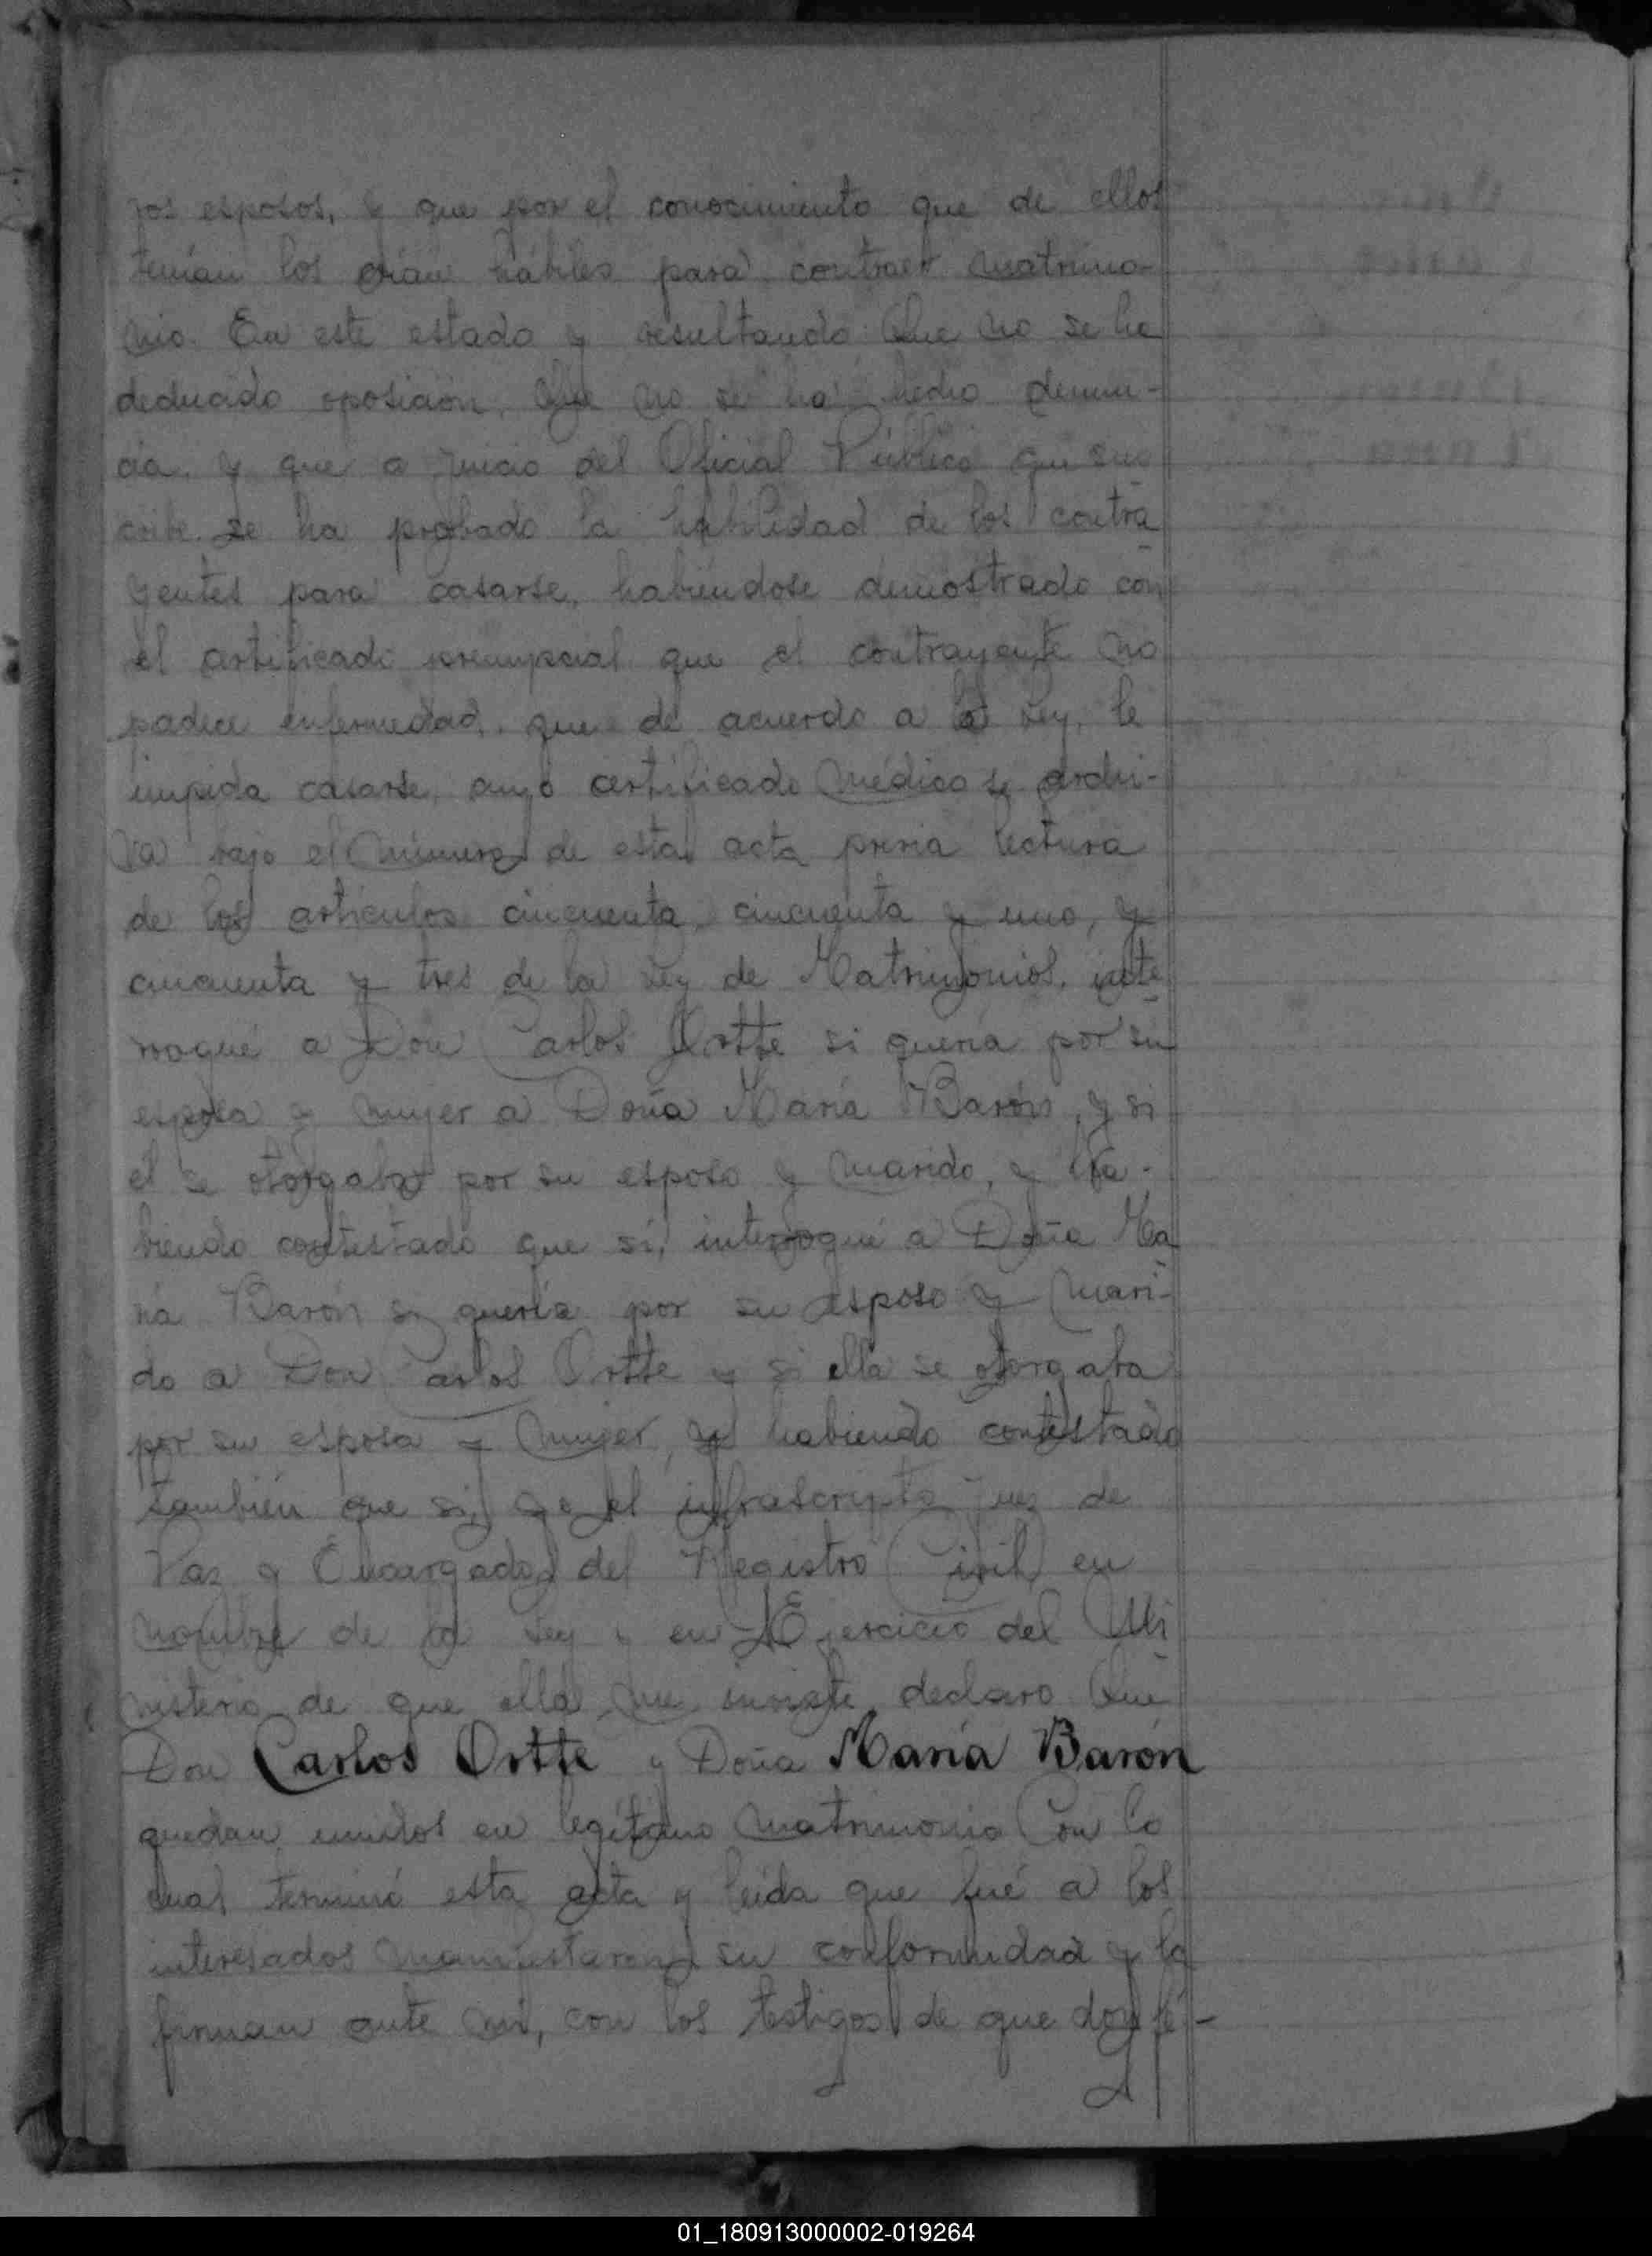 ros esposos, y que por el conocimiento que de ellos
tenían los creían hábiles para contraer matrimo-
nio. En este estado y resultando: Que no se ha
deducido oposición, Que no se ha hecho denun-
cia, y que a juicio del Oficial Público que sus-
cribe se ha probado la habilidad de los contra-
yentes para casarse, habiéndose demostrado con
el certificado prenupcial que el contrayente no
padece enfermedad, que de acuerdo a la Ley, le
impida casarse, cuyo certificado médico se archi-
va bajo el número de esta acta previa lectura
de los artículos cincuenta, cincuenta y uno, y
cincuenta y tres de la Ley de Matrimonios, inte-
rrogué a Don Carlos Ortte si quería por su
esposa y mujer a Doña María Barón, y si
él se otorgaba por su esposo y marido, y ha-
biendo contestado que sí, interrogué a Doña Ma
ría Barón si quería por su esposo y mari-
do a Don Carlos Ortte y si ella se otorgaba
por su esposa y mujer, y habiendo contestado
también que sí, yo el infrascripto Juez de
Paz y Encargado del Registro Civil en
nombre de la Ley y en Ejercicio del Mi-
nisterio de que ella me inviste, declaro: Que
Don Carlos Ortte y Doña María Barón
quedan unidos en legítimo matrimonio Con lo
cual terminó esta acta y leída que fué a los
interesados manifestaron su conformidad y la
firman ante mí, con los testigos de que doy fé-
01_180913000002-019264